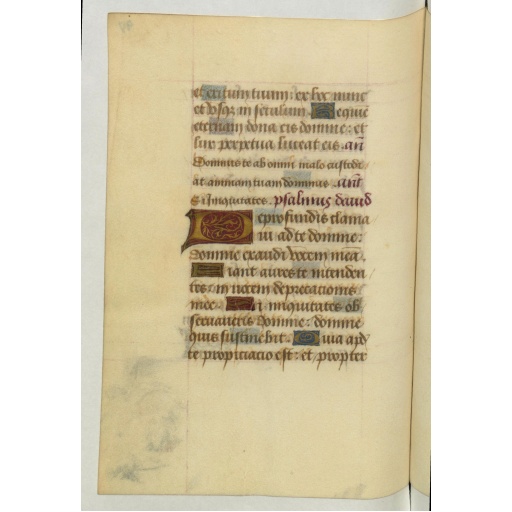 et exitum tuum: ex hoc nunc
et vsq; in seculum. Requiē
eternam dona eis domine: et
lux perpetua luceat eis. an̄
Dominus te ab omni malo custodi
at animam tuam dominus. ant̄
Si iniquitates. psalmus dauid
De profundis clama
ui ad te domine:
Domine exaudi vocem meā.
Fiant aures te intenden
tes: in vocem deprecationis
mee. Si iniquitates ob
seruaueris Domine: domine
quis sustinebit. Quia apd̄
te propiciacio est: et propter